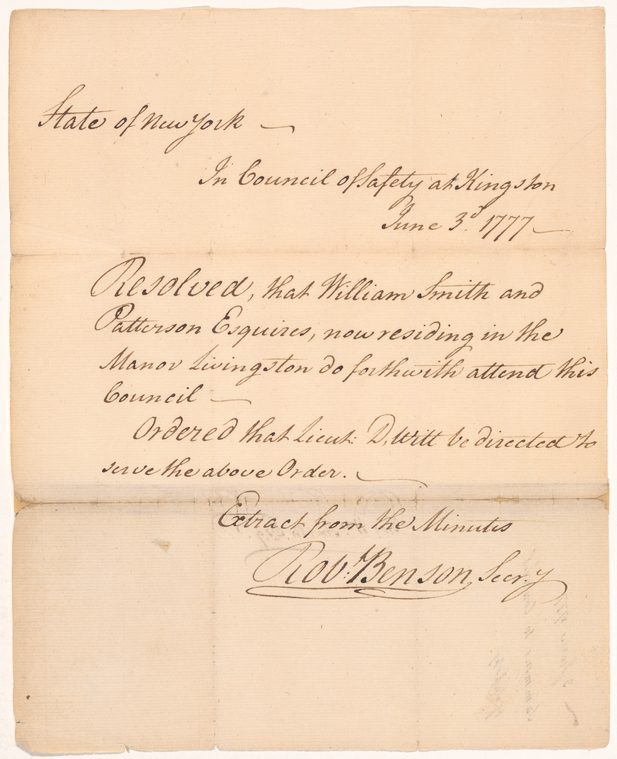 State of New York —
In Council of Safety at Kingston
June 3d. 1777 —
Resolved, that William Smith and
Patterson Esquires, now residing in the
Manor Livingston do forthwith attend this
Council —
Ordered that Lieut: D. Witt be directed to
serve the above Order. —
Extract from the Minutes
Robt. Benson, Secr.y